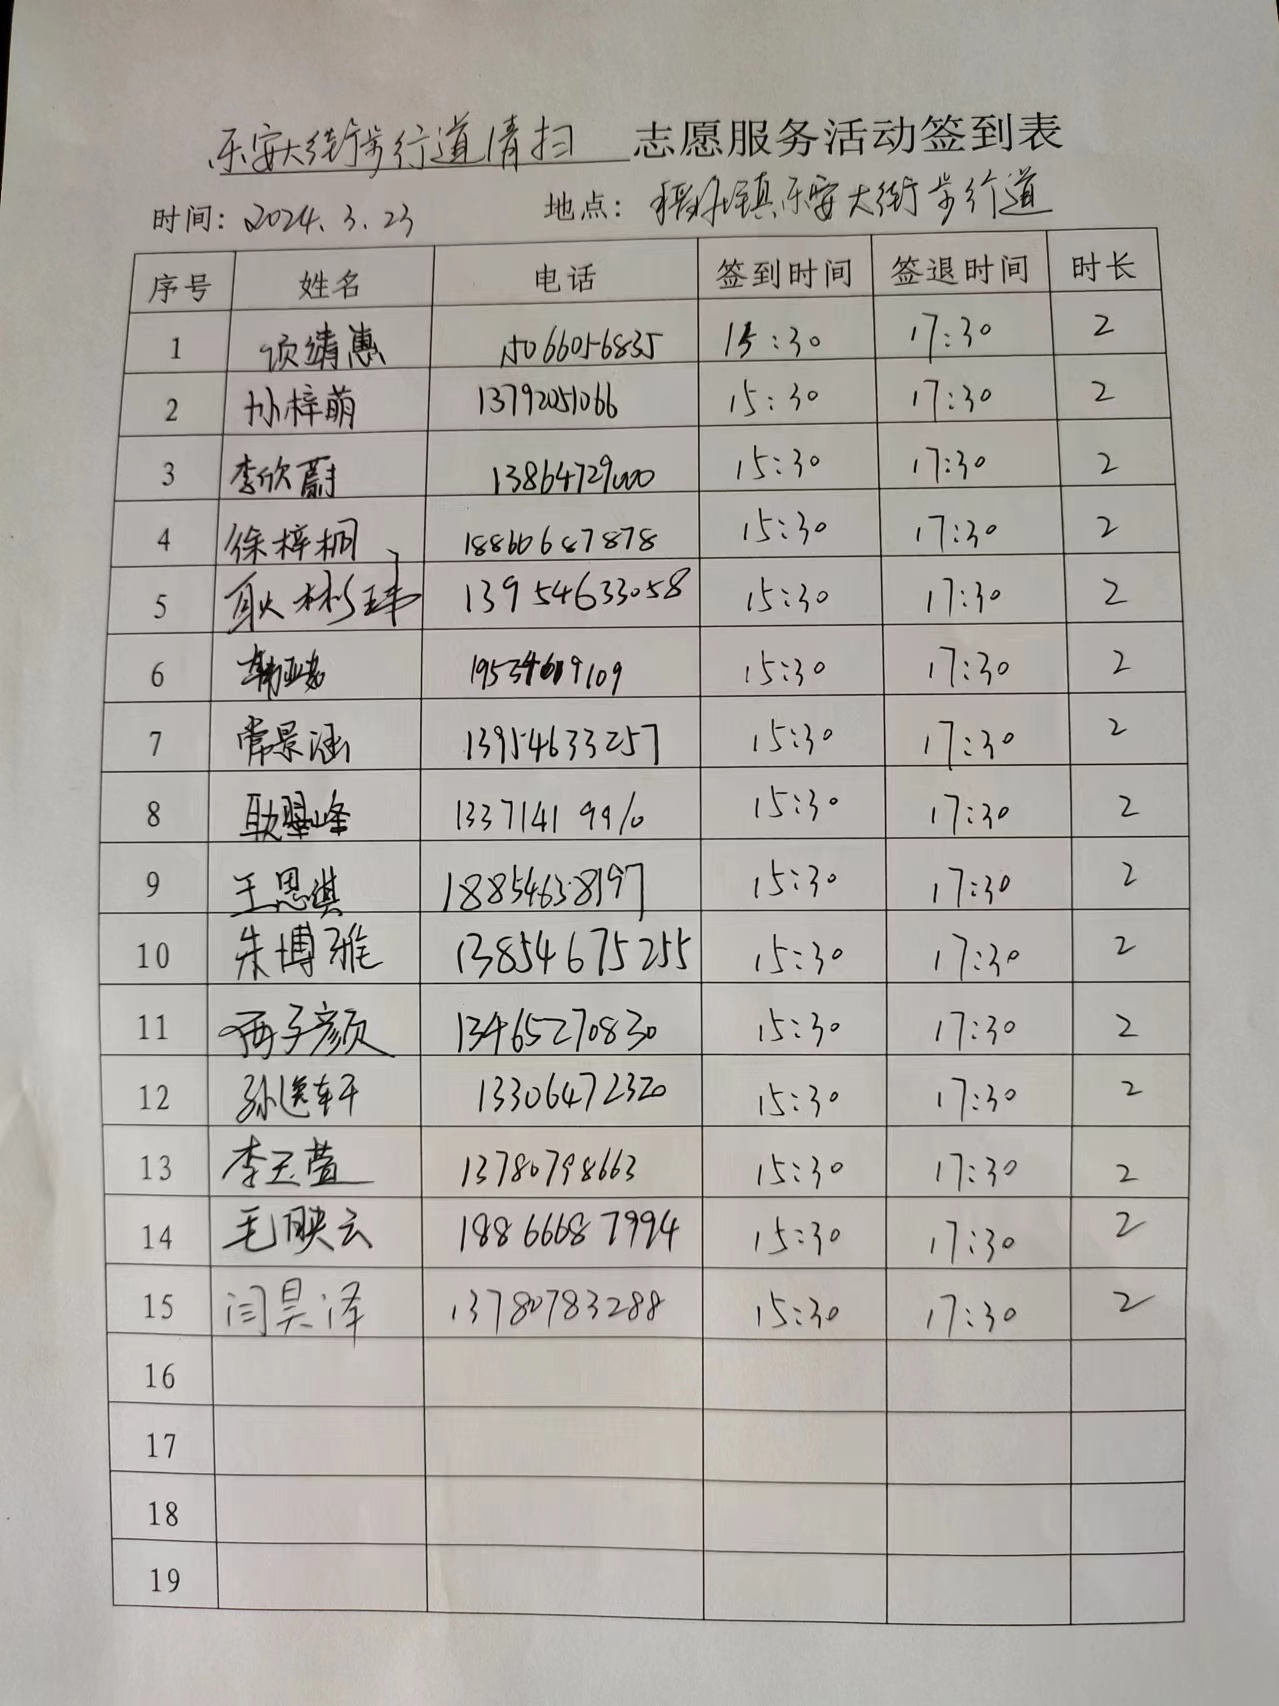 乐安大街步行道清扫 志愿服务活动签到表
时间：2024.3.23 地点：稻庄镇乐安大街步行道
序号 姓名 电话 签到时间 签退时间 时长
1 颂靖惠 15066056835 15:30 17:30 2
2 孙梓萌 13792051066 15:30 17:30 2
3 李欣蔚 13864729000 15:30 17:30 2
4 徐梓桐 18860687878 15:30 17:30 2
5 耿彬玮 13954633058 15:30 17:30 2
6 15:30 17:30 2
7 常景涵 13954633257 15:30 17:30 2
8 耿翠峰 13371419910 15:30 17:30 2
9 王恩淇 18854638197 15:30 17:30 2
10 朱博雅 13854675255 15:30 17:30 2
11 西子颜 13465270830 15:30 17:30 2
12 孙逸轩 13306472320 15:30 17:30 2
13 李玉萱 13780798663 15:30 17:30 2
14 毛映云 18866687994 15:30 17:30 2
15 闫昊泽 13780783288 15:30 17:30 2
16
17
18
19